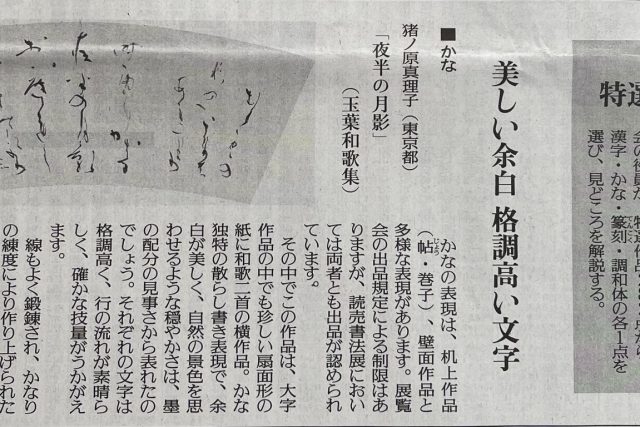 特選
漢字・かな・篆刻・調和体の各1点を
選び、見どころを解説する。
美しい余白 格調高い文字
■かな
猪ノ原真理子（東京都）
「夜半の月影」
（玉葉和歌集）
かなの表現は、机上作品
（帖・巻子）、壁面作品と
多様な表現があります。展覧
会の出品規定による制限はあ
りますが、読売書法展におい
ては両者とも出品が認められ
ています。
その中でこの作品は、大字
作品の中でも珍しい扇面形の
紙に和歌二首の横作品。かな
独特の散らし書き表現で、余
白が美しく、自然の景色を思
わせるような穏やかさは、墨
の配分の見事さから表れたの
でしょう。それぞれの文字は
格調高く、行の流れが素晴ら
しく、確かな技量がうかがえ
ます。
線もよく鍛錬され、かなり
の練度により作り上げられた